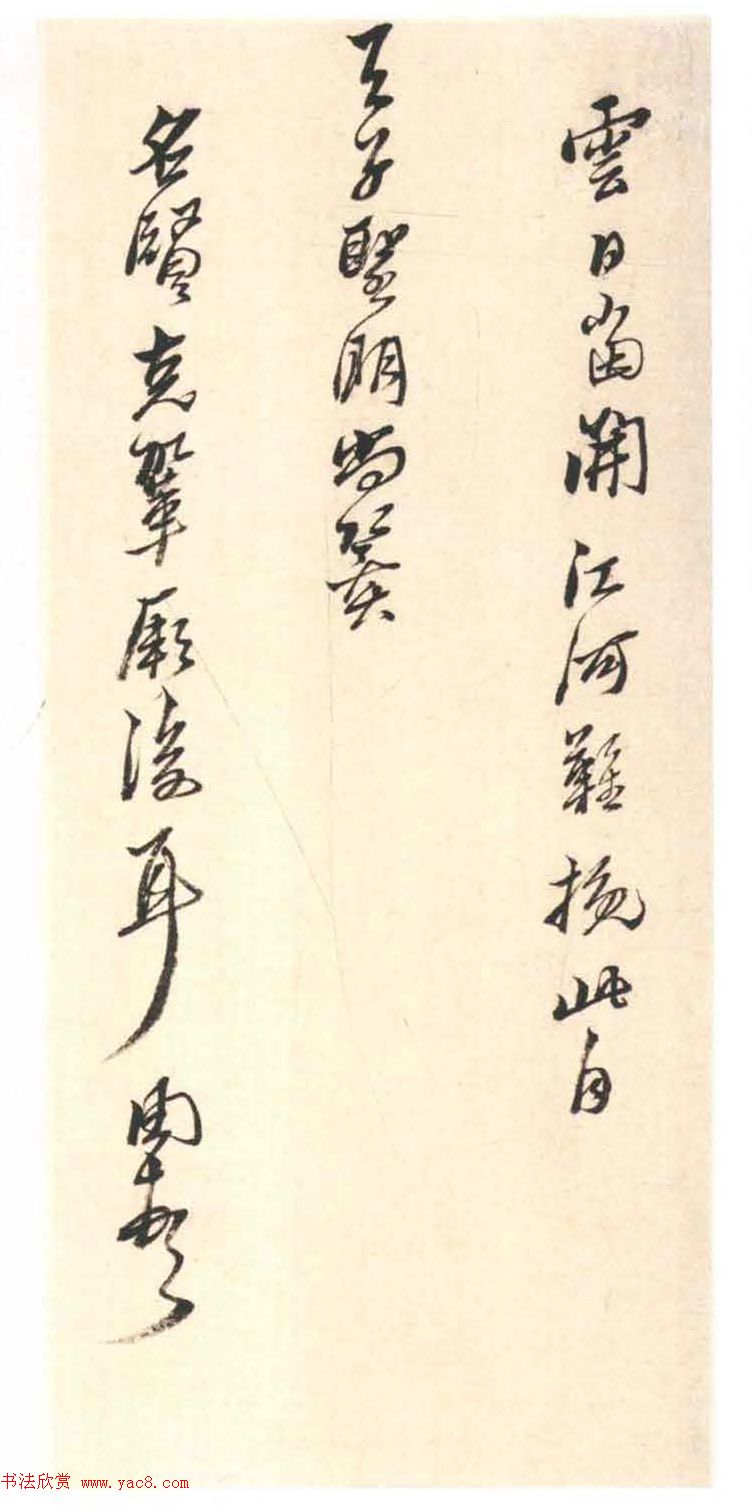 雲日當開江河難挽此自
天子聖明尚冀
名賢克鞏厥後耳
书法欣赏 www.yac8.com